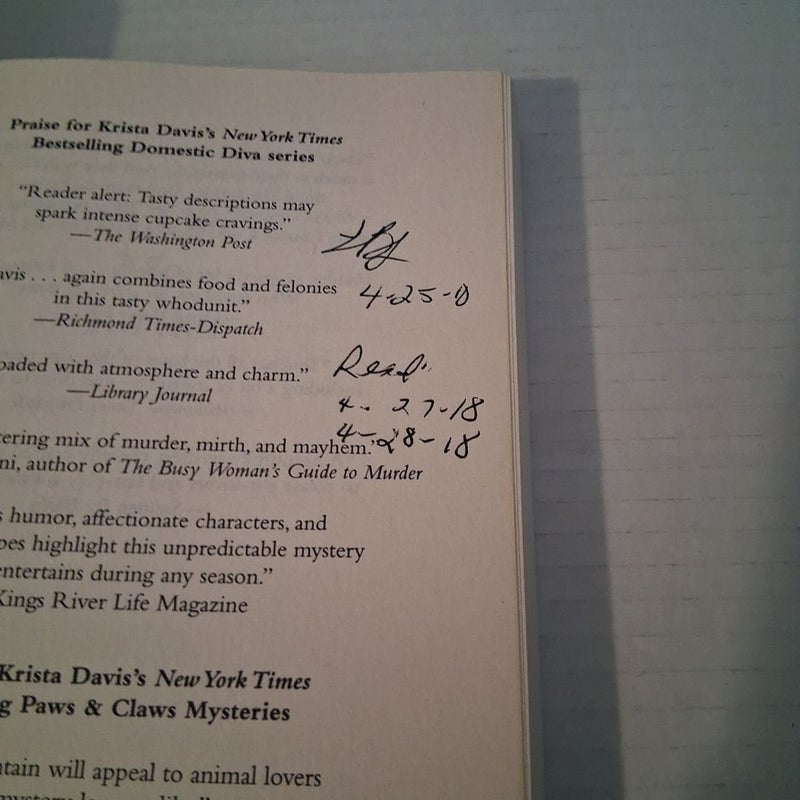 Praise for Krista Davis's New York Times
Bestselling Domestic Diva series
"Reader alert: Tasty descriptions may
spark intense cupcake cravings."
—The Washington Post
avis . . . again combines food and felonies
4-25-0
in this tasty whodunit."
—Richmond Times-Dispatch
oaded with atmosphere and charm."
Read
—Library Journal
4- 27-18
ering mix of murder, mirth, and mayhem."
4-28-18
ni, author of The Busy Woman's Guide to Murder
s humor, affectionate characters, and
pes highlight this unpredictable mystery
entertains during any season."
Kings River Life Magazine
Krista Davis's New York Times
g Paws & Claws Mysteries
ntain will appeal to animal lovers